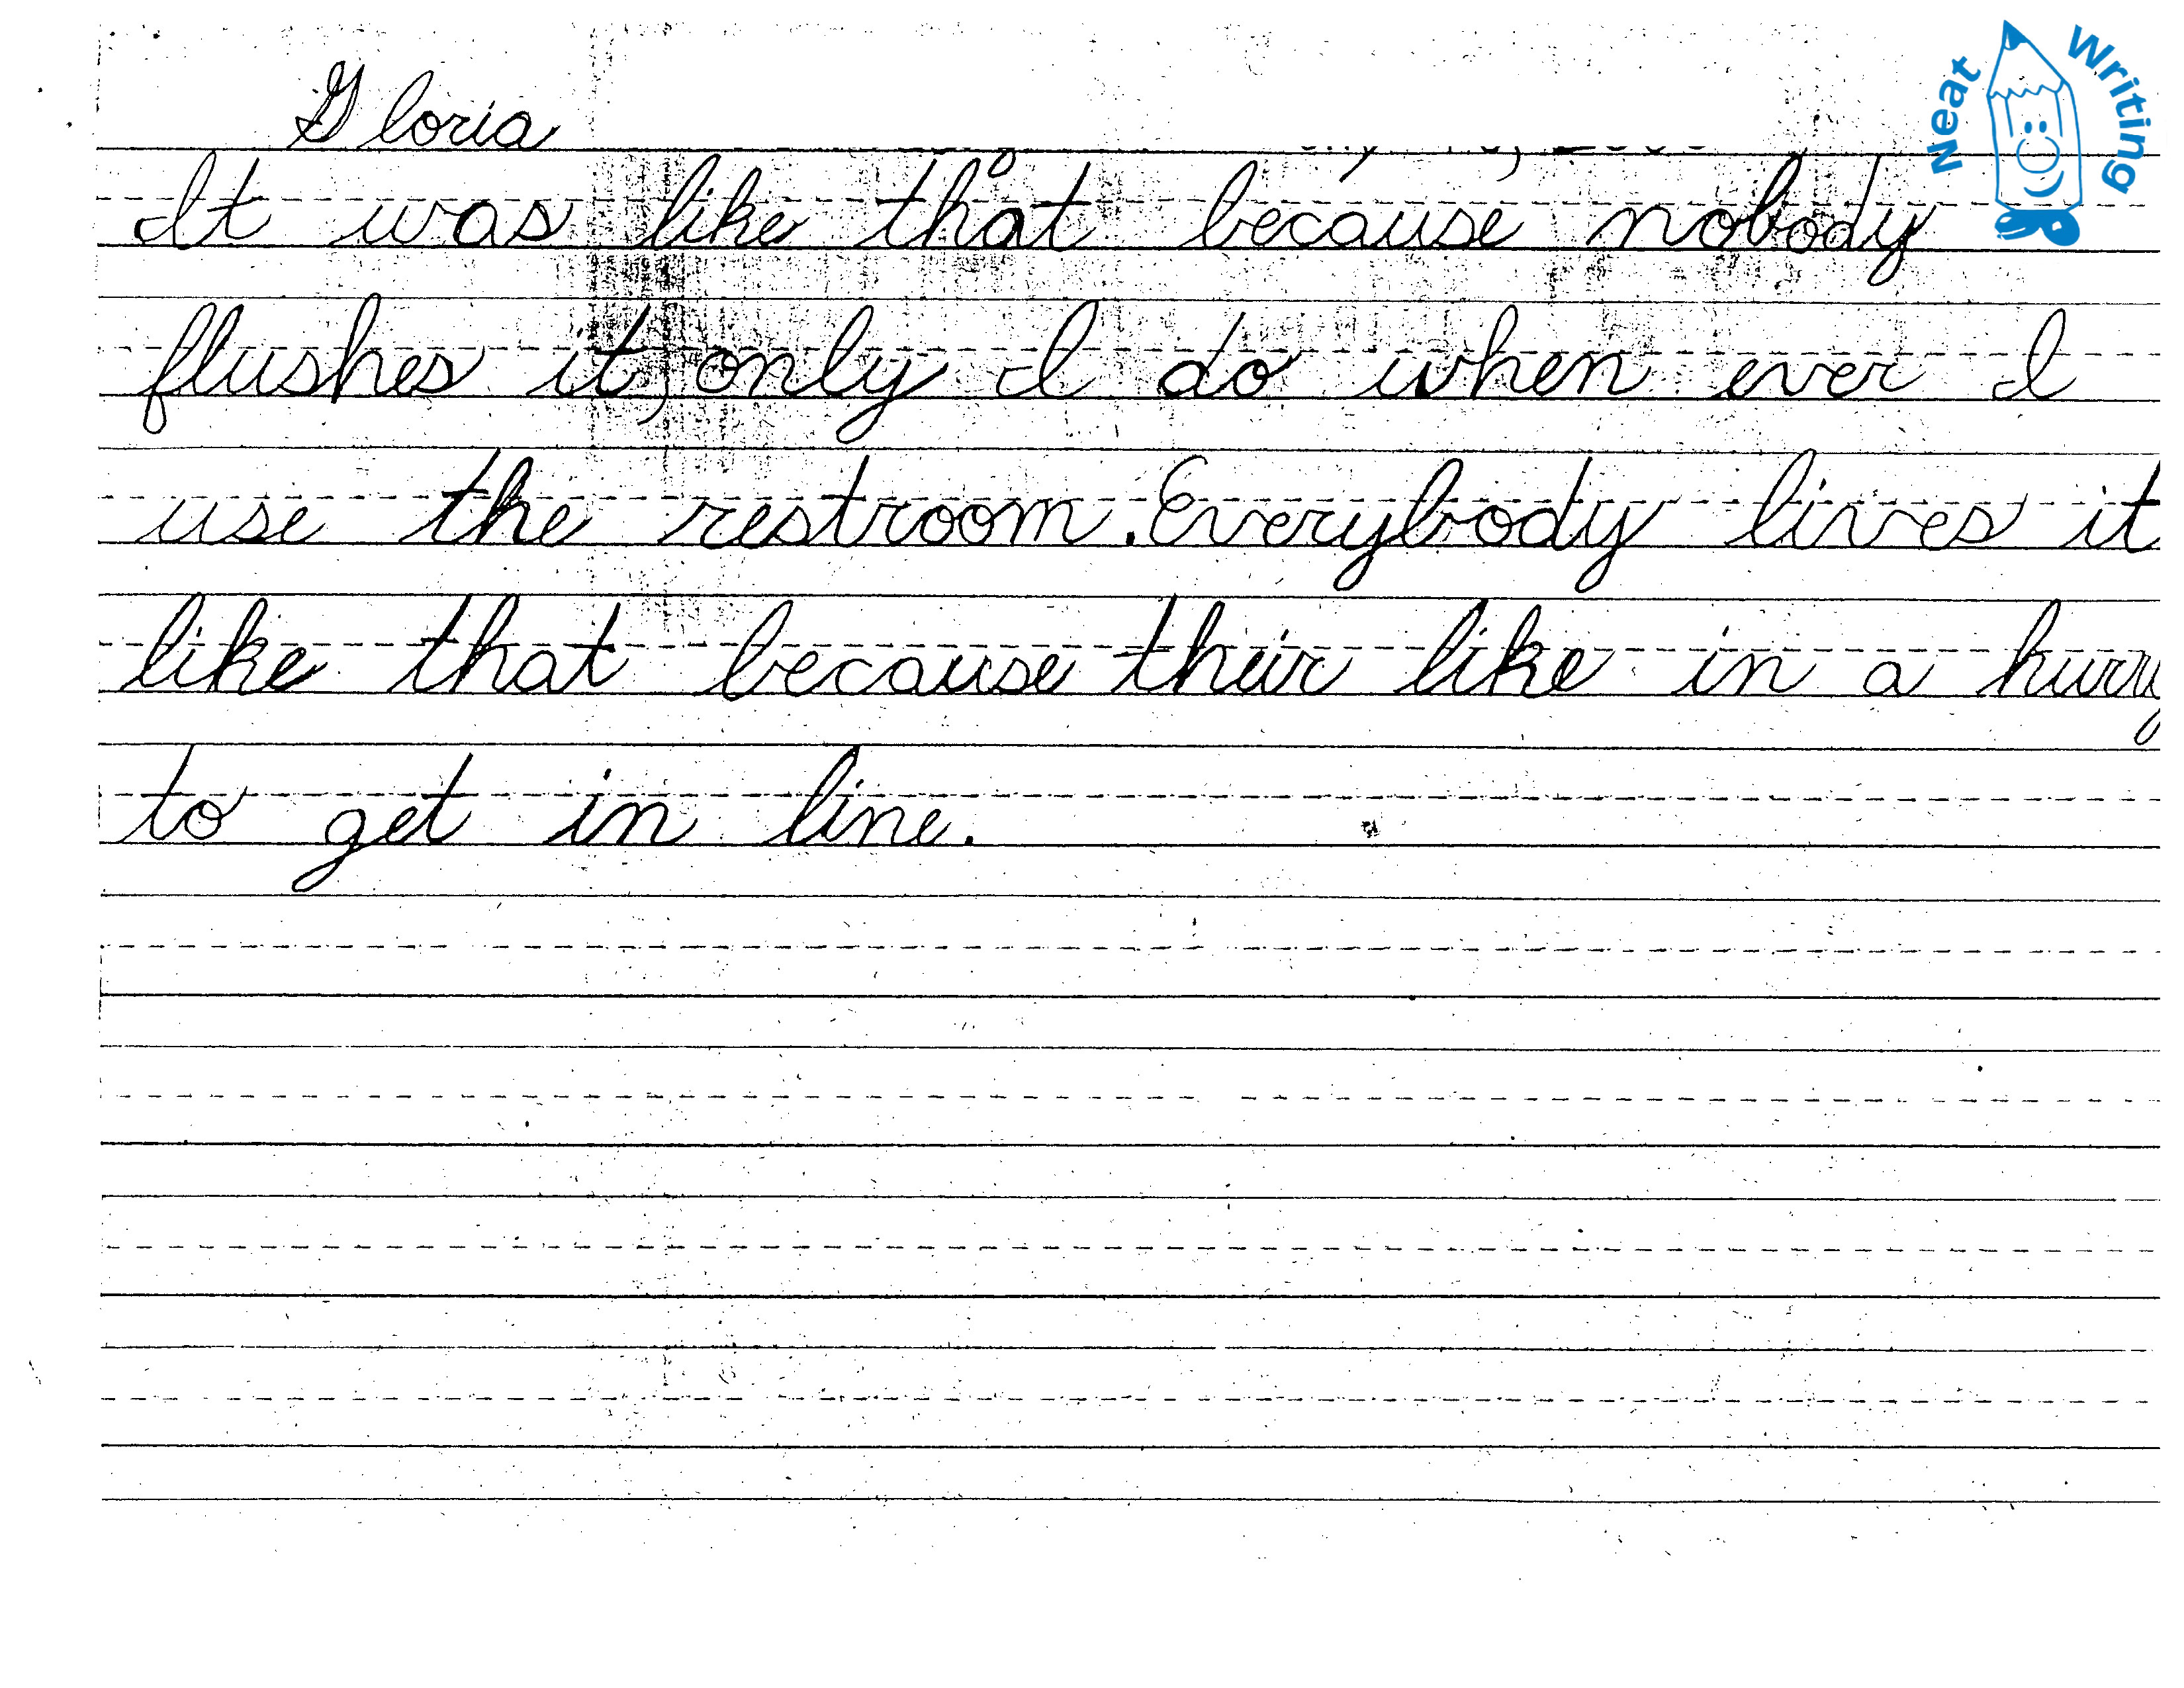 Gloria
Neat Writing
It was like that because nobody
flushes it, only I do when ever I
use the restroom. Everybody lives it
like that because their like in a hurry
to get in line.